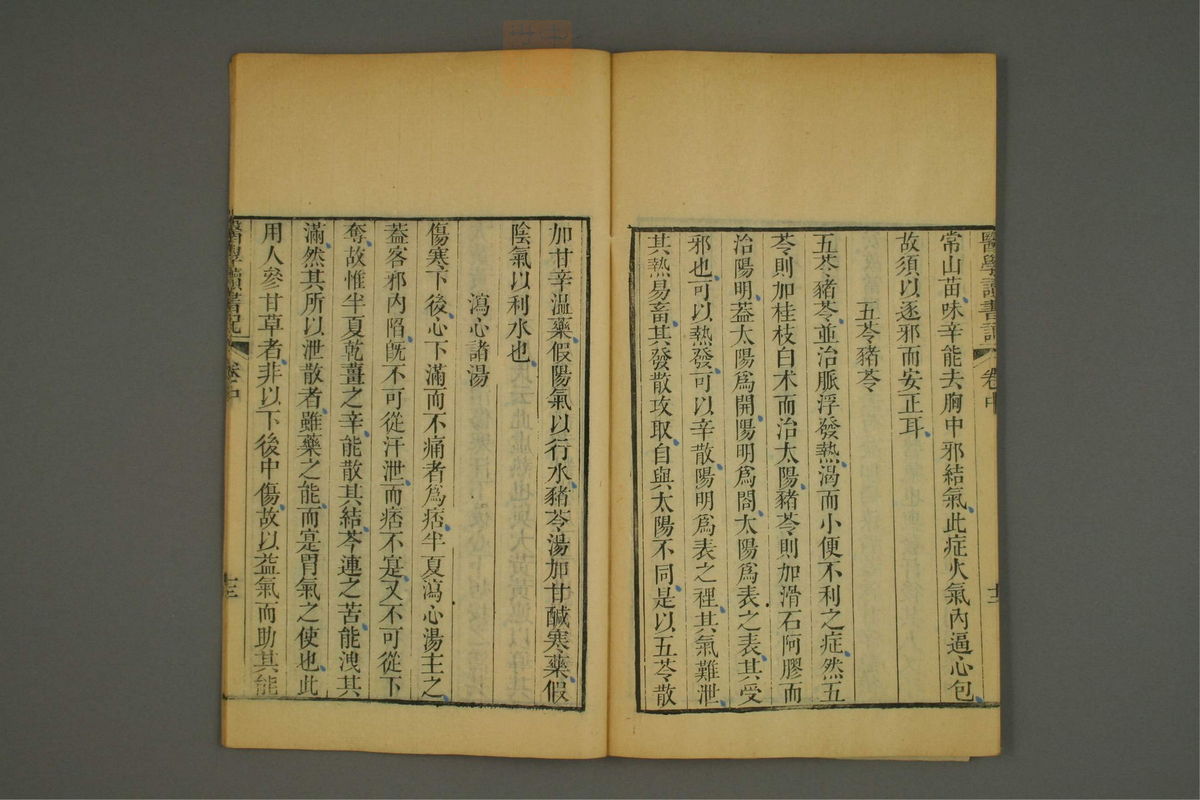 醫學讀書記 卷中 十二
常山苗味辛能去胸中邪結氣此症火氣內逼心包
故須以逐邪而安正耳
五苓豬苓
五苓豬苓並治脈浮發熱渴而小便不利之症然五
苓則加桂枝白术而治太陽豬苓則加滑石阿膠而
治陽明葢太陽為開陽明為闔太陽為表之表其受
邪也可以熱發可以辛散陽明為表之裡其氣難泄
其熱易蓄其發散攻取自與太陽不同是以五苓散
加甘辛溫藥假陽氣以行水豬苓湯加甘鹹寒藥假
陰氣以利水也
瀉心諸湯
傷寒下後心下滿而不痛者為痞半夏瀉心湯主之
葢客邪內陷旣不可從汗泄而痞不寔又不可從下
奪故惟半夏乾薑之辛能散其結芩連之苦能洩其
滿然其所以泄散者雖藥之能而寔胃氣之使也此
用人參甘草者非以下後中傷故以益氣而助其能
醫學讀書記 卷中 十三